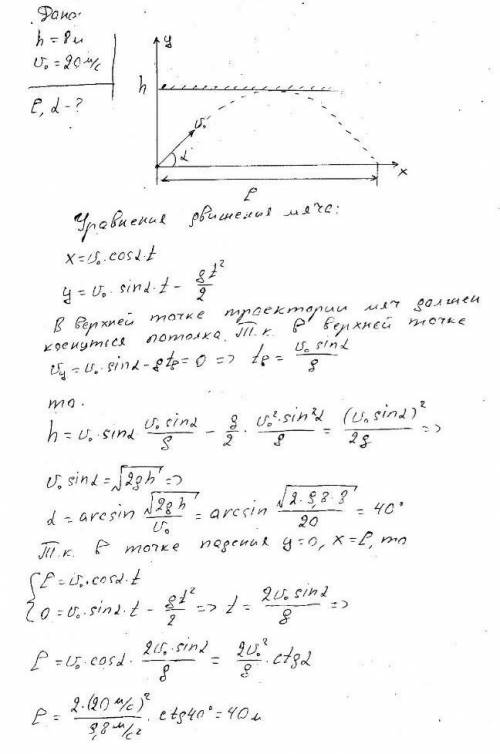 Дано:
h = 8 м
v₀ = 20 м/с
l, α - ?
y
h
v₀
α
x
l
Уравнения движения мяча:
x = v₀·cosα·t
y = v₀·sinα·t - gt²/2
В верхней точке траектории мяч должен
коснуться потолка. Т.к. в верхней точке
v_y = v₀·sinα - gt_в = 0 => t_в = v₀ sinα/g
то.
h = v₀·sinα v₀ sinα/g - g/2 · v₀²·sin²α/g = (v₀ sinα)²/2g =>
v₀ sinα = √2gh =>
α = arcsin √2gh/v₀ = arcsin √2·9,8·8/20 = 40°
Т.к. в точке падения y=0, x=l, то
{ l = v₀·cosα·t
0 = v₀·sinα·t - gt²/2 => t = 2v₀ sinα/g =>
l = v₀·cosα · 2v₀·sinα/g = 2v₀²/g · ctgα
l = 2·(20 м/с)²/9,8 м/с² · ctg40° = 40 м